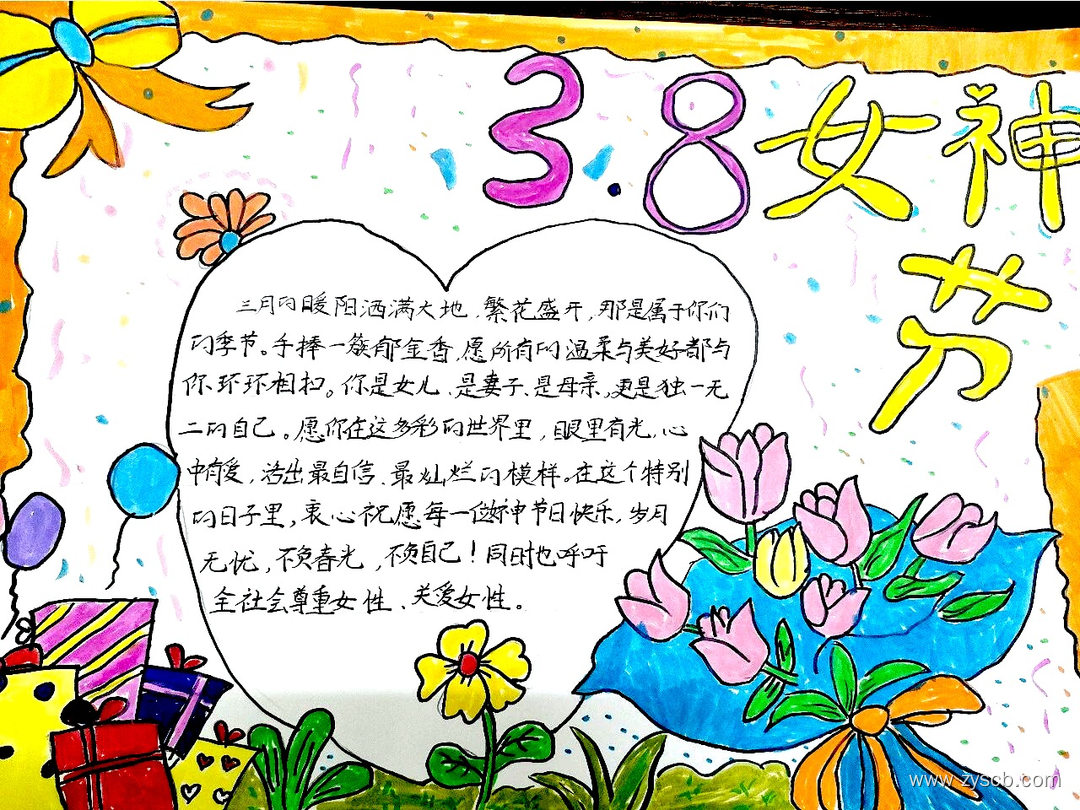 3.8女神
节
三月的暖阳洒满大地，繁花盛开，那是属于你们
的季节。手捧一簇郁金香，愿所有的温柔与美好都与
你环环相扣。你是女儿、是妻子、是母亲，更是独一无
二的自己。愿你在这多彩的世界里，眼里有光，心
中有爱，活出最自信、最灿烂的模样。在这个特别
的日子里，衷心祝愿每一位女神节日快乐，岁月
无忧，不负春光，不负自己！同时也呼吁
全社会尊重女性、关爱女性。
www.zyscb.com